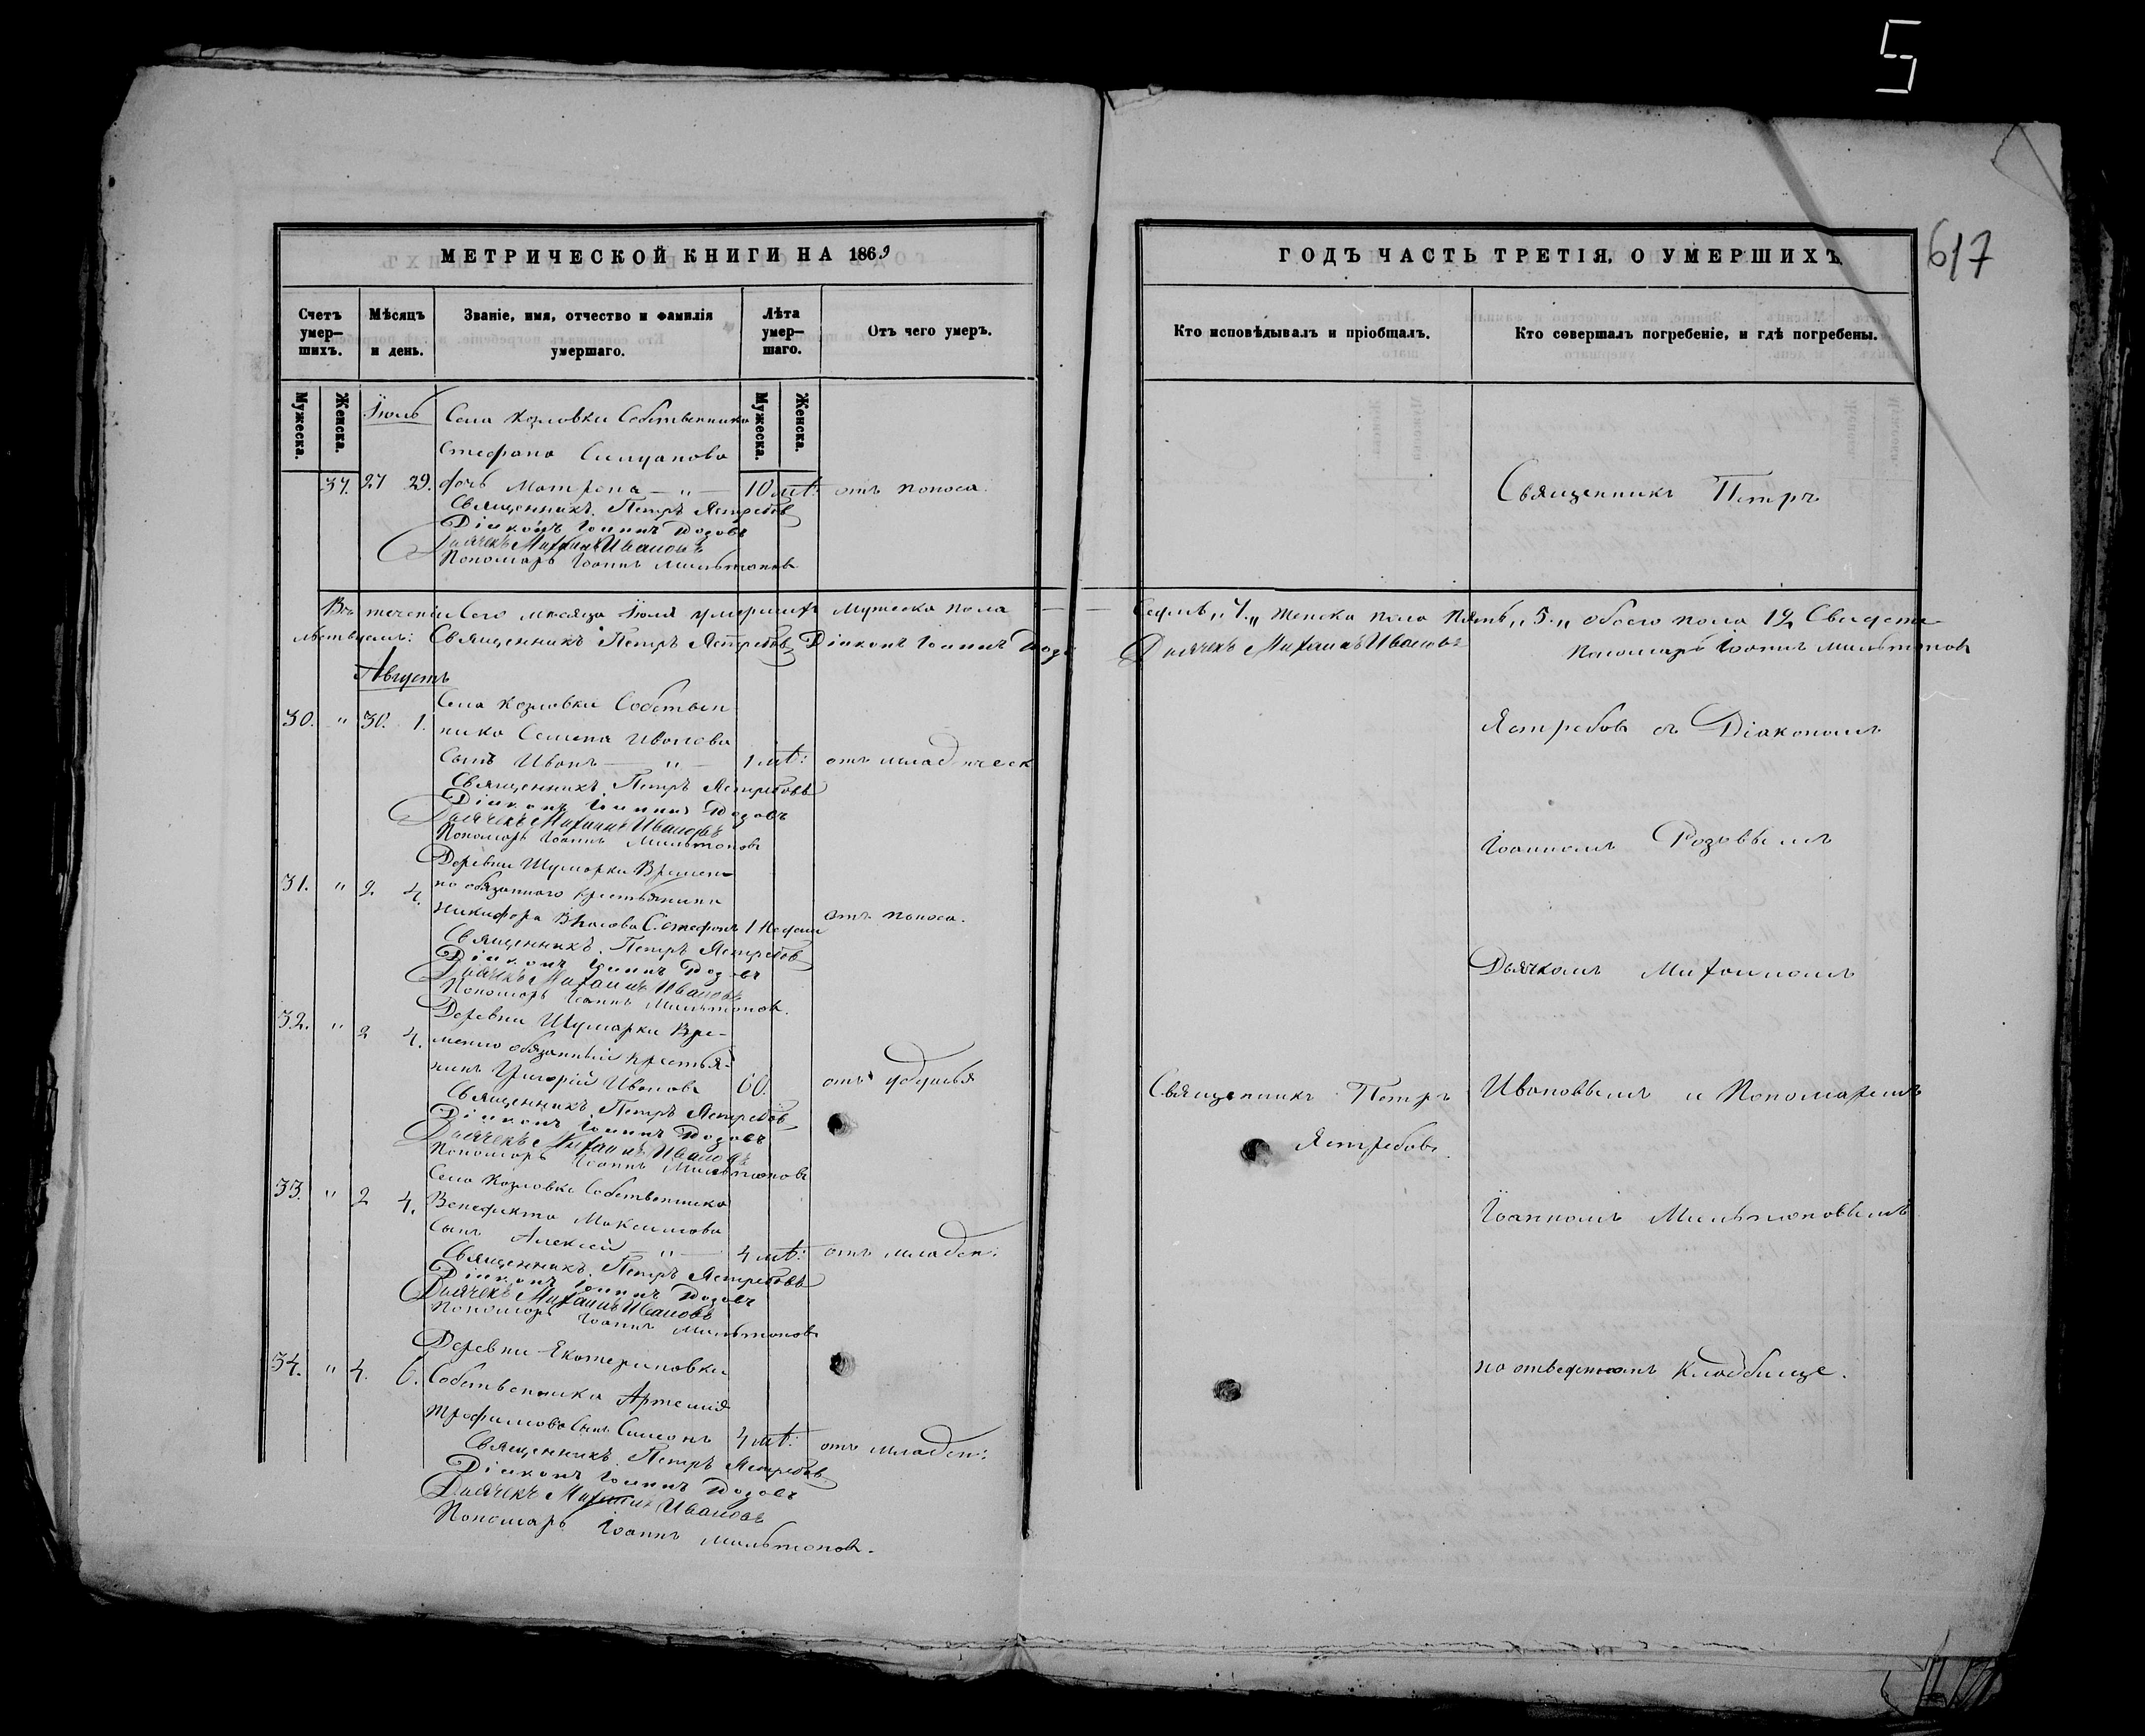 5
МЕТРИЧЕСКОЙ КНИГИ НА 1869
Счетъ умер–шихъ.
Мѣсяцъ и день.
Званіе, имя, отчество и фамилія умершаго.
Лѣта умер–шаго.
Отъ чего умеръ.
Мужеска.
Женска.
Мужеска.
Женска.
Іюль
Села Козловки Собственника
Стефана Силуанова
37. 27 29. дочь Матрена — „ — 10 лѣт: отъ поноса.
Священникъ Петръ Ястребовъ
Діаконъ Іоаннъ Розовъ
Дьячекъ Михаилъ Ивановъ
Пономарь Іоаннъ Мильтоновъ
Въ теченіи сего мѣсяца Іюля умершихъ мужеска пола —
льствуемъ: Священникъ Петръ Ястребовъ Діаконъ Іоаннъ Розо
Августъ
Села Козловки Собствен
30. „ 30. 1. ника Семена Иванова
Сынъ Иванъ — „ — 1 лѣт: отъ младенческ
Священникъ Петръ Ястребовъ
Діаконъ Іоаннъ Розовъ
Дьячекъ Михаилъ Ивановъ
Пономарь Іоаннъ Мильтоновъ
Деревни Шумарки Времен–
31. „ 2. 4. но обязаннаго крестьянина
Никифора Власова С. Стефанъ 1 Недели отъ поноса.
Священникъ Петръ Ястребовъ
Діаконъ Іоаннъ Розовъ
Дьячекъ Михаилъ Ивановъ
Пономарь Іоаннъ Мильтоновъ.
Деревни Шумарки Вре–
32. „ 2 4. менно обязанный крестья–
нинъ Григорій Ивановъ 60. отъ удушья
Священникъ Петръ Ястребовъ
Діаконъ Іоаннъ Розовъ
Дьячекъ Михаилъ Ивановъ
Пономарь Іоаннъ Мильтоновъ
Села Козловки Собственника
33. „ 2 4. Венедикта Максимова
Сынъ Алексей — „ — 4 лѣт: отъ младен:
Священникъ Петръ Ястребовъ
Діаконъ Іоаннъ Розовъ
Дьячекъ Михаилъ Ивановъ
Пономарь Іоаннъ Мильтоновъ
Деревни Екатериновки
34. „ 4. 6. Собственника Артемія
Трофимова Сынъ Симеонъ 4 лѣт: отъ младен:
Священникъ Петръ Ястребовъ
Діаконъ Іоаннъ Розовъ
Дьячекъ Михаилъ Ивановъ
Пономарь Іоаннъ Мильтоновъ.
ГОДЪ ЧАСТЬ ТРЕТІЯ, О УМЕРШИХЪ
617
Кто исповѣдывалъ и пріобщалъ.
Кто совершалъ погребеніе, и гдѣ погребены.
Священникъ Петръ
— Седмь „7„ женска пола Пять „5„ обоего пола 12 Свидете
Дьячекъ Михаилъ Ивановъ Пономарь Іоаннъ Мильтоновъ
Ястребовъ съ Діакономъ
Іоанномъ Розовымъ
Дьячкомъ Михаиломъ
Священникъ Петръ
Ястребовъ.
Ивановымъ и Пономаремъ
Іоанномъ Мильтоновымъ
на отведенномъ Кладбище.